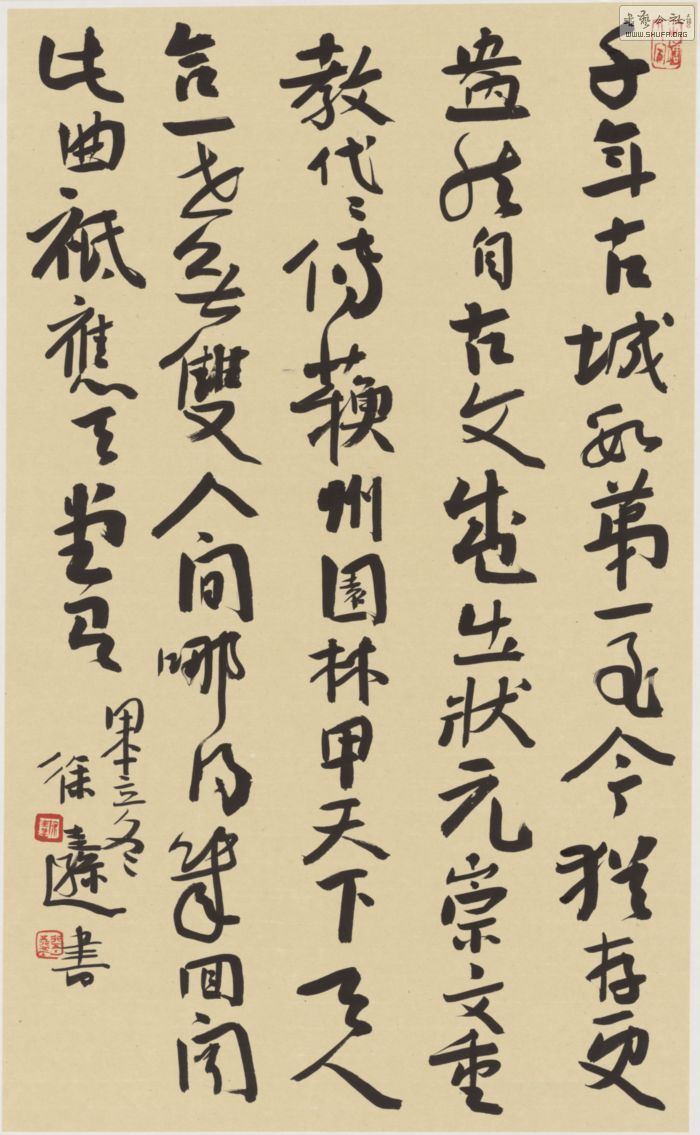 千年古城數第一至今猶存更
盎然自古文盛出狀元崇文重
教代〻傳蘇州園林甲天下天人
合一世無雙人間哪得幾回聞
此曲祗應天堂有
甲午立冬
徐 書
書藝公社
WWW.SHUFA.ORG